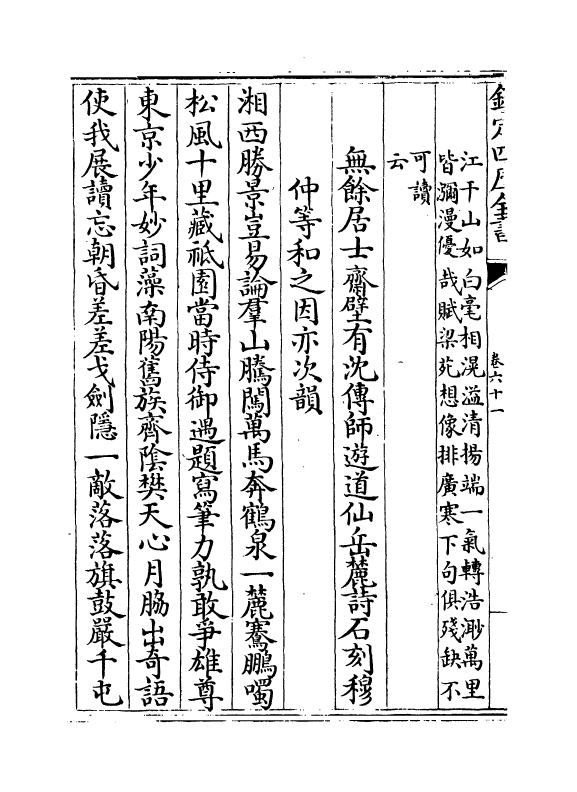 欽定四庫全書
卷六十一
江千山如白毫相滉溢清揚端一氣轉浩渺萬里
皆瀰漫優哉賦梁苑想像排廣寒下句俱殘缺不
可讀
云
無餘居士齋壁有沈傳師遊道仙岳麓詩石刻穆
仲等和之因亦次韻
湘西勝景豈易論羣山騰闖萬馬奔鶴泉一麓騫鵬噣
松風十里藏祗園當時侍御遇題寫筆力孰敢爭雄尊
東京少年妙詞藻南陽舊族齊陰樊天心月脇出奇語
使我展讀忘朝昏差差戈劍隱一敵落落旗鼓嚴千屯